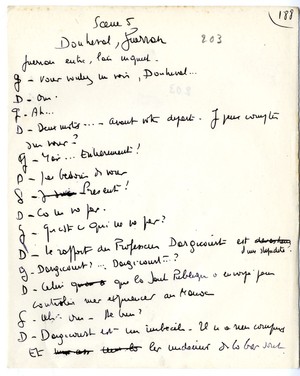 Scene 5
188
Donheval, Guerran
203
Guerran entre, l'air inquiet.
G - Vous voulez me voir, Donheval...
D - Oui.
G - Ah...
D - Deux mots... - avant votre départ. Je peux compter
sur vous ?
G - Moi... Entièrement !
D - J'ai besoin de vous
G - Présent !
D - Ca ne va pas.
G - Qu'est ce qui ne va pas ?
D - Le rapport du Professeur Dorgicourt est
d'une stupidité
G - Dorgicourt ?... Dorgicourt... ?
D - Celui que la Santé Publique a envoyé pour
contrôler mes expériences au
G - Ah ! oui - Eh bien ?
D - Dorgicourt est un imbécile. Il n'a rien compris
Et les